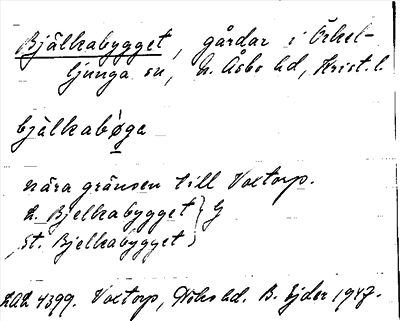 Bjälkabygget, gårdar i Örkel-
ljunga sn, N. Åsbo hd, Krist. l.
bjälkabøga
nära gränsen till Voxtorp.
L. Bjelkabygget } G
St. Bjelkabygget
4399. Voxtorp, hd. B. Ejder 1947.